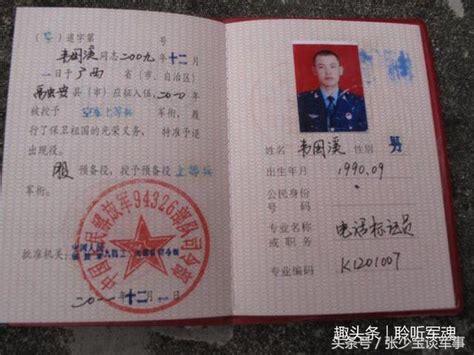 退字第 号
韦国溪同志2009年十二月
一日于广西省(市、自治区)
县(市)应征入伍,
被授予 空军上等兵 军衔,履
行了保卫祖国的光荣义务,特准予退
出现役。
服预备役,授予预备役上等兵
军衔。
中国人民解放军94326部队司令部
批准机关:
十二月一日
姓名 韦国溪 性别 男
出生年月 1990.09
公民身份
号码
专业名称
或职务 电话标证员
专业编码 K1201007
趣头条 | 聆听军魂
头条号 / 张少宝谈军事